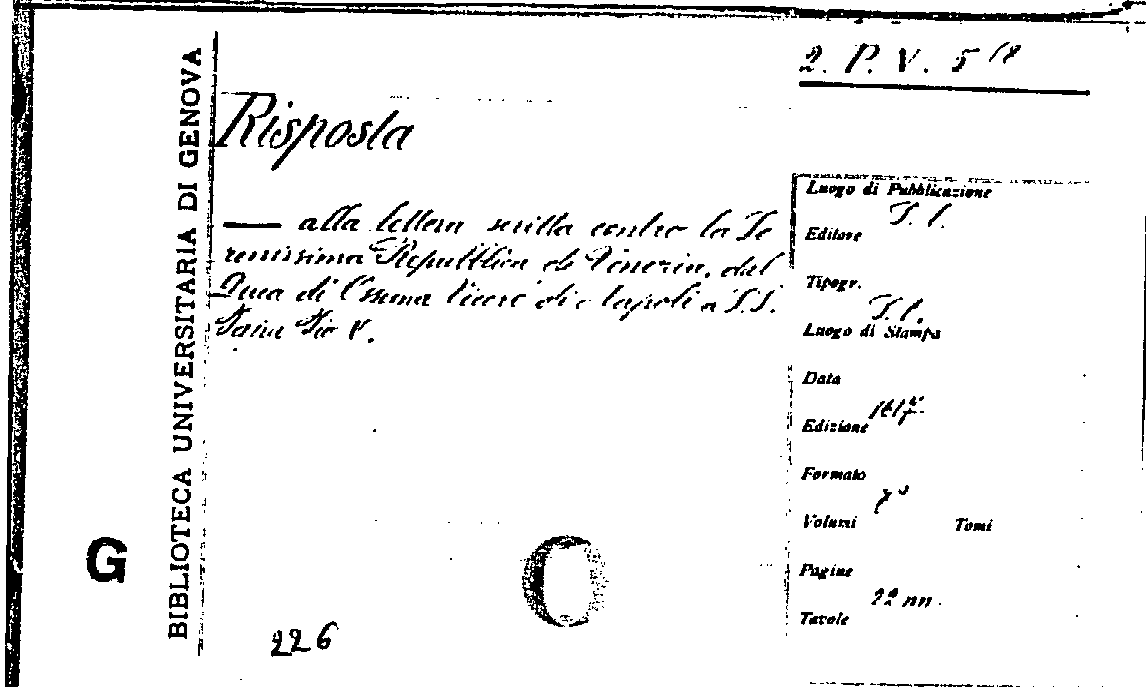 2. P. V. 5
BIBLIOTECA UNIVERSITARIA DI GENOVA
Risposta
— alla lettera scritta contro la Se
renissima Repubblica di Venezia, dal
Duca di Ossuna Vicerè di Napoli a S.S.
Papa V.
Luogo di Pubblicazione
S. l.
Editore
Tipogr.
S. l.
Luogo di Stampa
Data
Edizione
Formato
Volumi Tomi
Pagine
22 nn.
Tavole
G
226